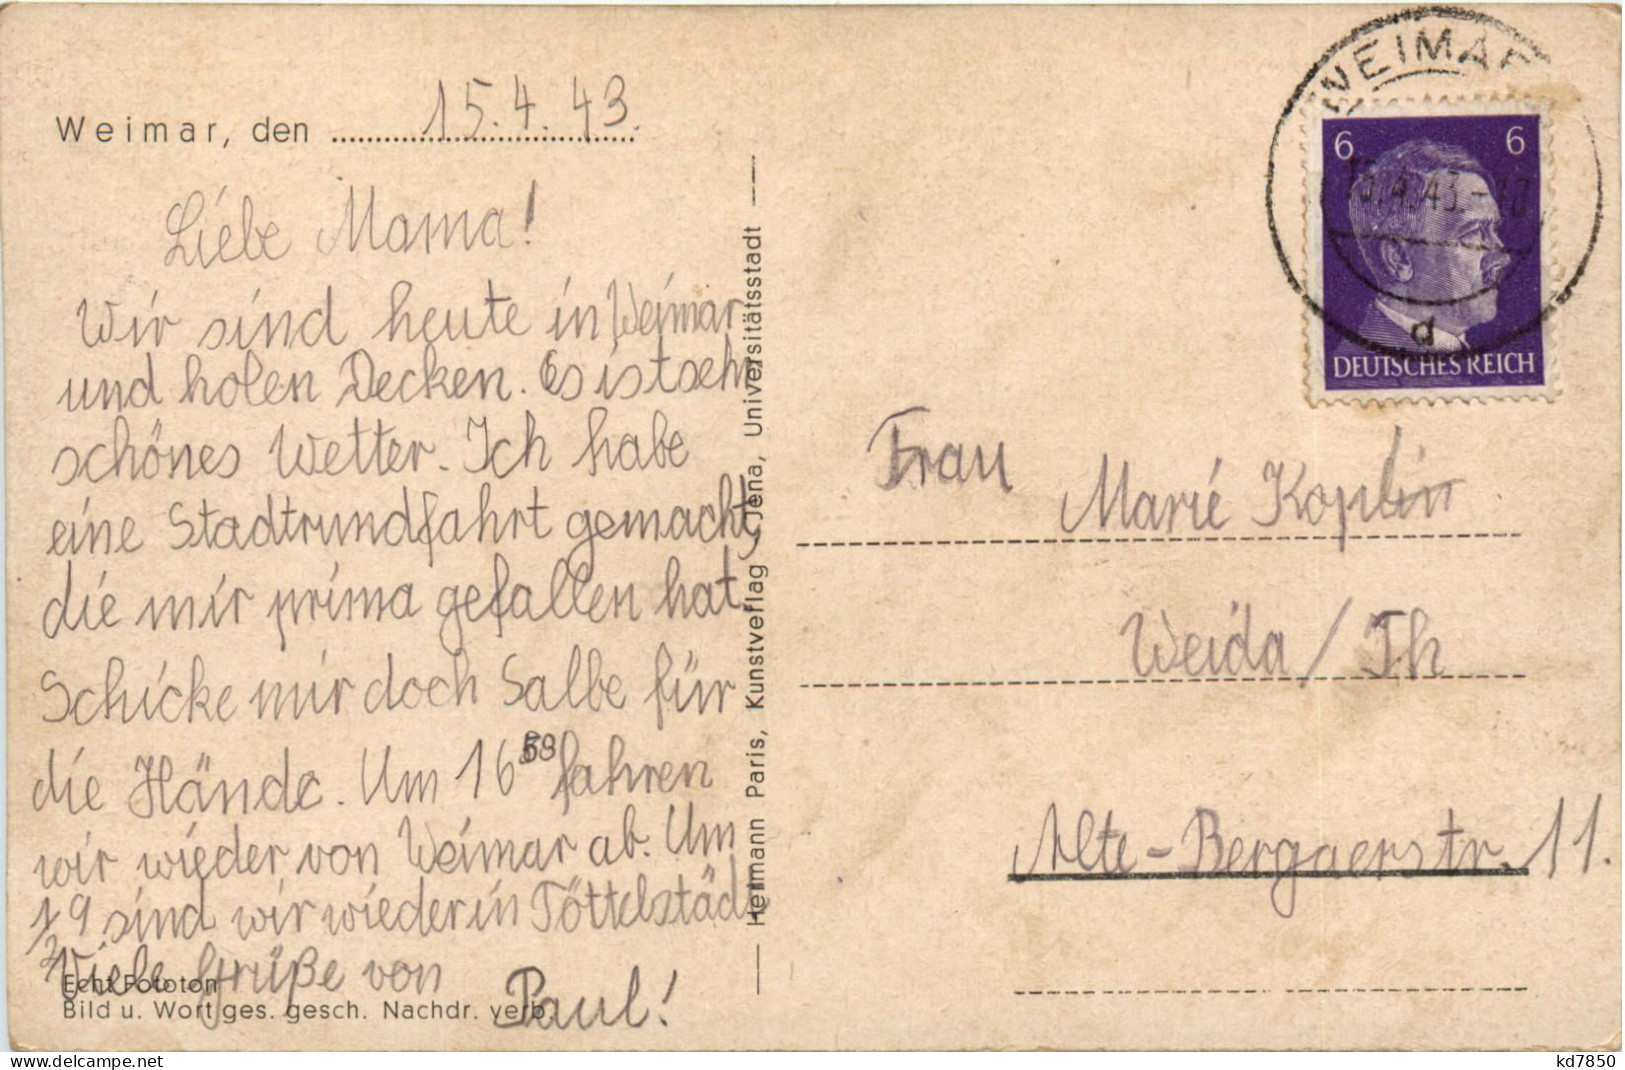 Weimar, den 15.4.43.
Liebe Mama!
Wir sind heute in Weimar
und holen Decken. Es ist sehr
schönes Wetter. Ich habe
eine Stadtrundfahrt gemacht,
die mir prima gefallen hat.
Schicke mir doch Salbe für
die Hände. Um 16 fahren
wir wieder von Weimar ab. Um
1/2 9 sind wir wieder in Töttelstädt
Viele Grüße von
Paul!
Echt Fototon
Bild u. Wort ges. gesch. Nachdr. verb.
Hermann Paris, Kunstverlag, Jena, Universitätsstadt
WEIMAR
15.4.43.-
d
6 6
DEUTSCHES REICH
Frau
Marie Koplin
Weida / Th
Alte-Bergaerstr. 11.
delcampe.net
kd7850